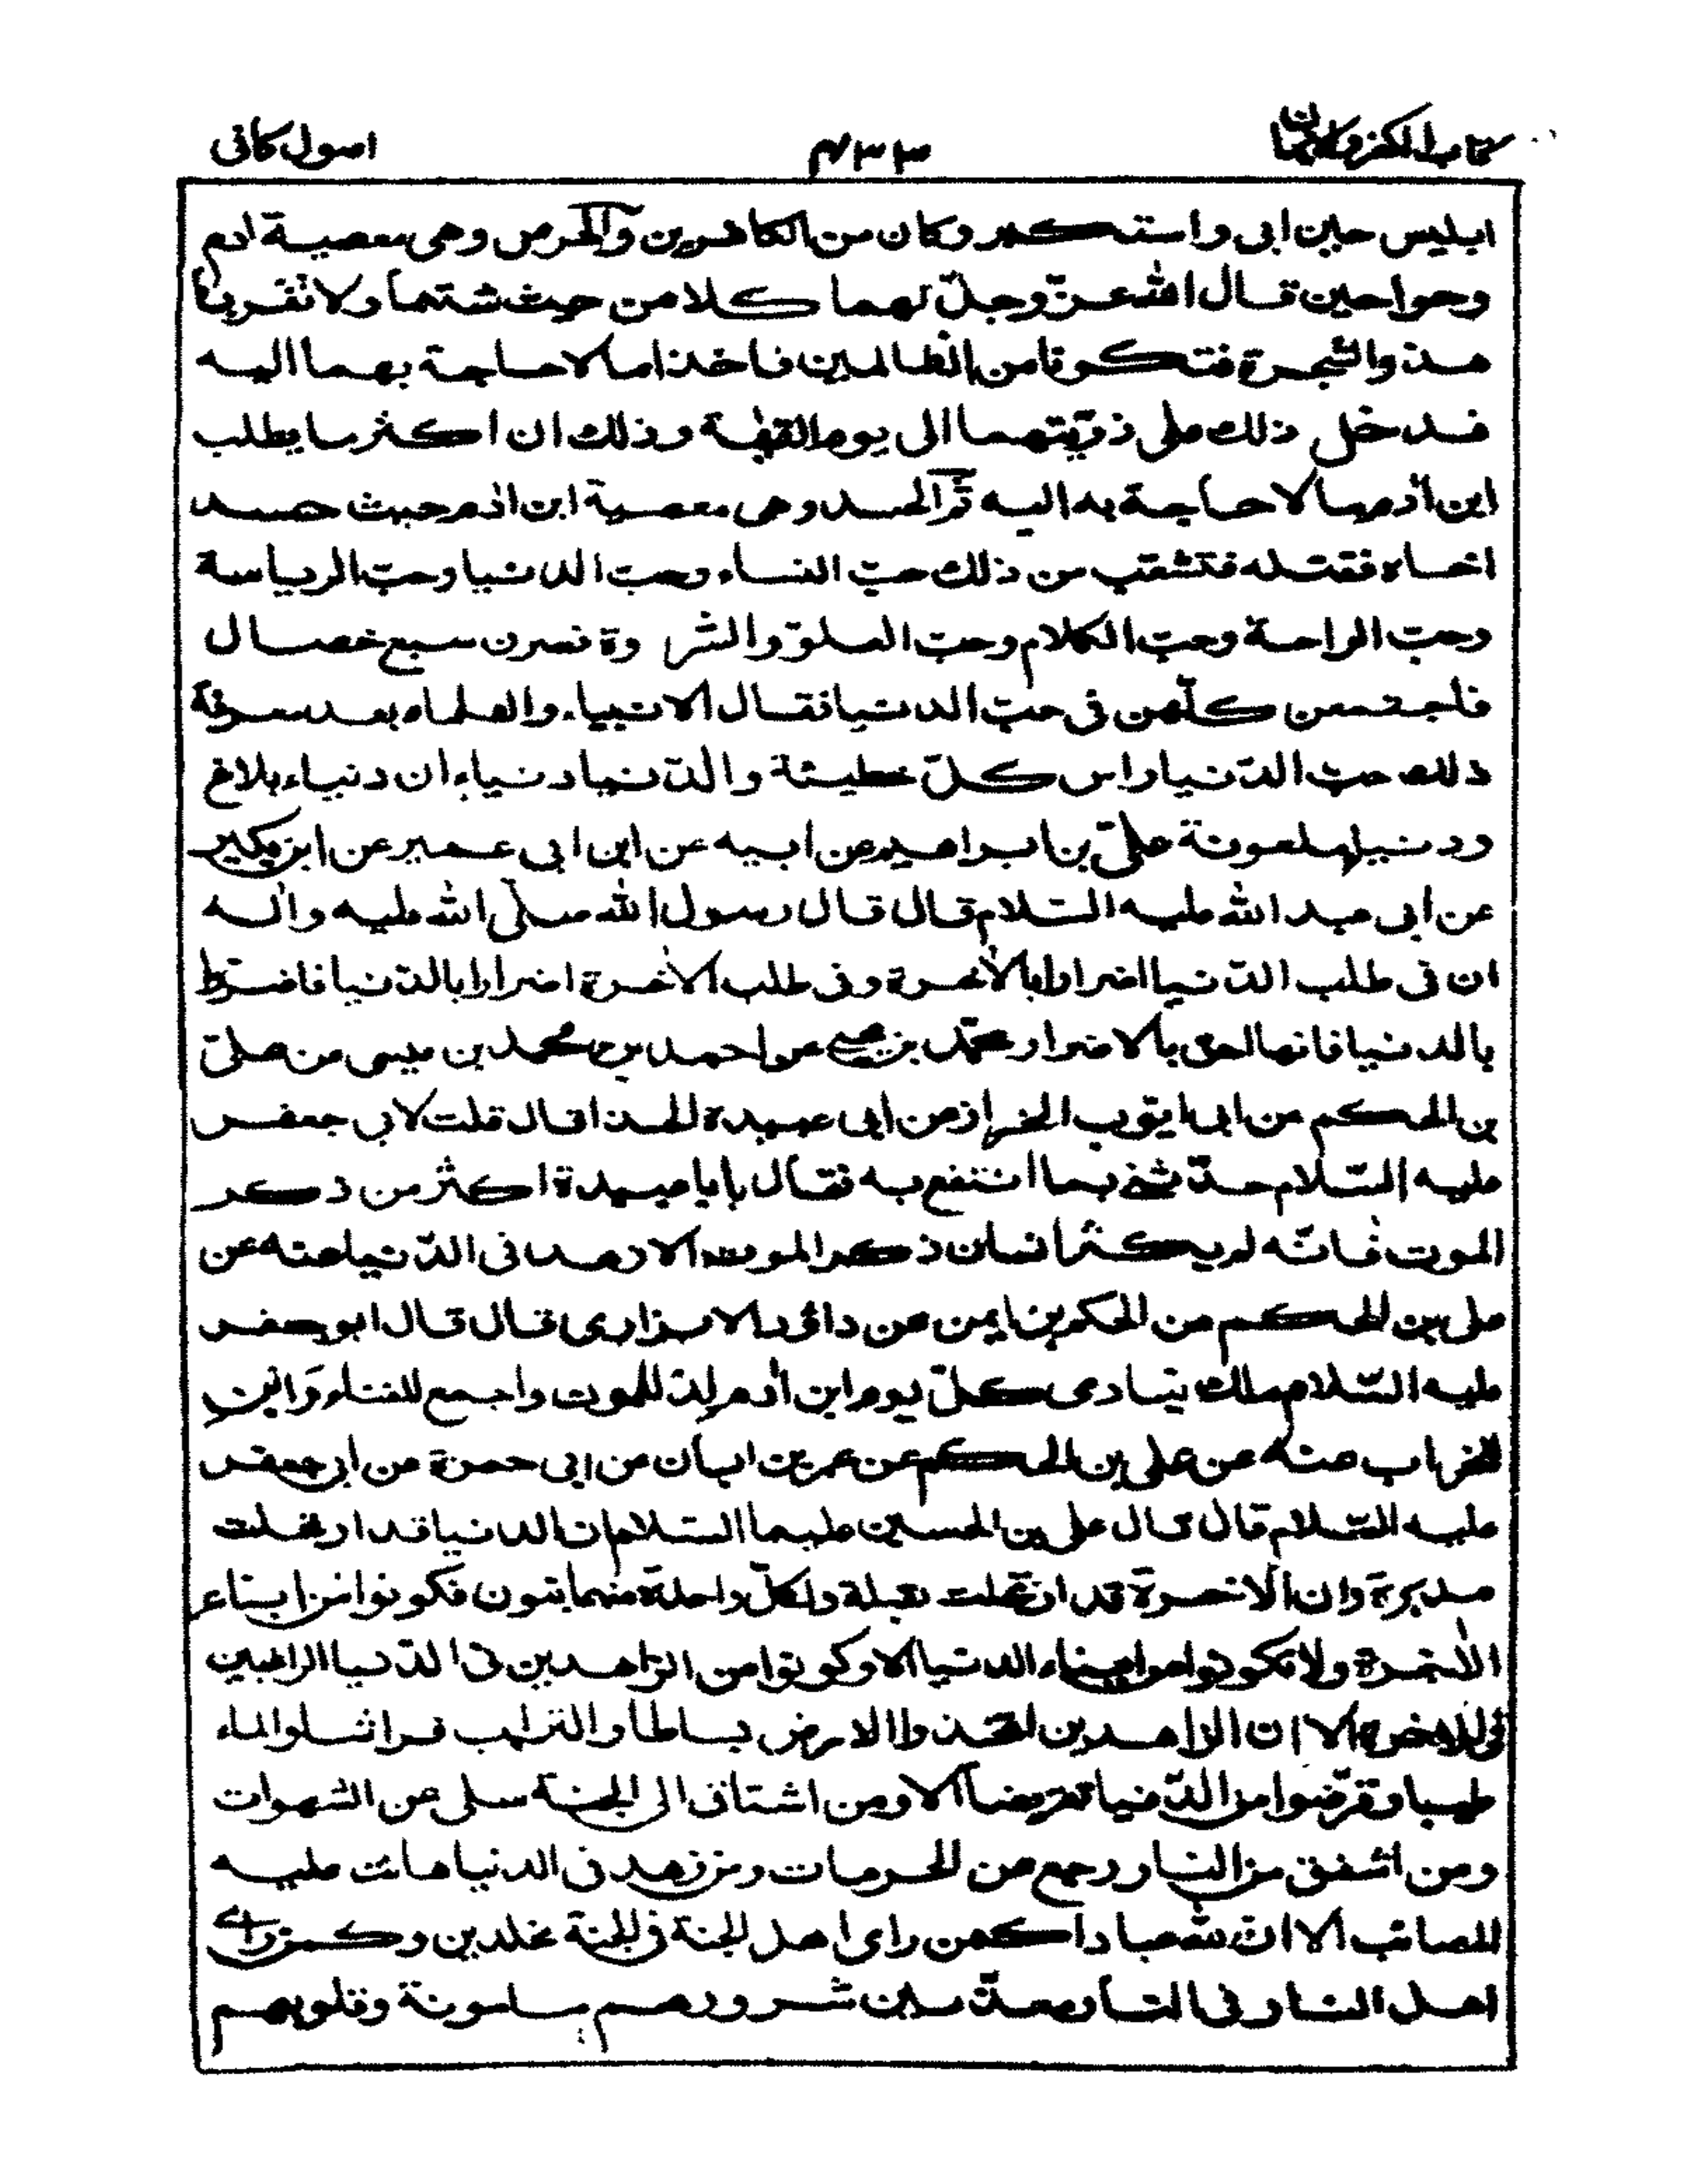 كتاب الكفر والايمان ٤٣٣ اصول كافى
ابليس حين ابى واستكبر وكان من الكافرين والحرص وهى معصية ادم
وحوا حين قال الله عزّ وجلّ لهما كلا من حيث شئتما ولا تقربا
هذه الشجرة فتكونا من الظالمين فاخذا ما لا حاجة بهما اليه
فدخل ذلك على ذرّيتهما الى يوم القيٰمة وذلك ان اكثر ما يطلب
ابن اٰدم ما لا حاجة به اليه ثم الحسد وهى معصية ابن اٰدم حيث حسد
اخاه فقتله فتشعّب من ذلك حبّ النساء وحبّ الدنيا وحبّ الرياسة
وحبّ الراحة وحبّ الكلام وحبّ العلوّ والثر وة فصرن سبع خصال
فاجتمعن كلّهن فى حبّ الدنيا فقال الانبياء والعلماء بعد معرفة
ذلك حبّ الدّنيا راس كلّ خطيئة والدّنيا دنياءان دنياء بلاغ
ودنيا ملعونة علىّ بن ابراهيم عن ابيه عن ابن ابى عمير عن ابن بكير
عن ابى عبد الله عليه السّلام قال قال رسول الله صلّى الله عليه واٰله
ان فى طلب الدّنيا اضرارا بالاٰخرة وفى طلب الاٰخرة اضرارا بالدّنيا فاضرّوا
بالدنيا فانها احق بالاضرار محمّد بن يحيى عن احمد بن محمد بن عيسى عن علىّ
بن الحكم عن ابى ايّوب الخزاز عن ابى عبيدة الحذا قال قلت لابي جعفر
عليه السّلام حدّثنى بما انتفع به فقال يا با عبيدة اكثر من ذكر
الموت فانّه لم يكثر انسان ذكر الموت الا زهد فى الدّنيا عنه عن
على بن الحكم عن الحكم بن ايمن عن داؤد الابزارى قال قال ابو جعفر
عليه السّلام ملك ينادى كلّ يوم ابن اٰدم لد للموت واجمع للفناء وابن
للخراب عنه عن على بن الحكم عن عمر بن ابان عن ابى حمزة عن ابى جعفر
عليه السّلام قال قال على بن الحسين عليهما السّلام ان الدنيا قد ارتحلت
مدبرة وان الاخرة قد ارتحلت مقبلة ولكلّ واحدة منهما بنون فكونوا من ابناء
الاٰخرة ولا تكونوا من ابناء الدنيا الا وكونوا من الزاهدين فى الدّنيا الراغبين
فى الاخرة الا ان الزاهدين اتخذوا الارض بساطا والتراب فراشا والماء
طيبا وقرّضوا من الدّنيا تقريضا الا ومن اشتاق الى الجنة سلى عن الشهوات
ومن اشفق من النار رجع عن المحرمات ومن زهد فى الدنيا هانت عليه
المصائب الا انّ لله عبادا كمن راى اهل الجنة فى الجنة مخلدين وكمن راى
اهل النار فى النار معذّبين شرورهم مامونة وقلوبهم